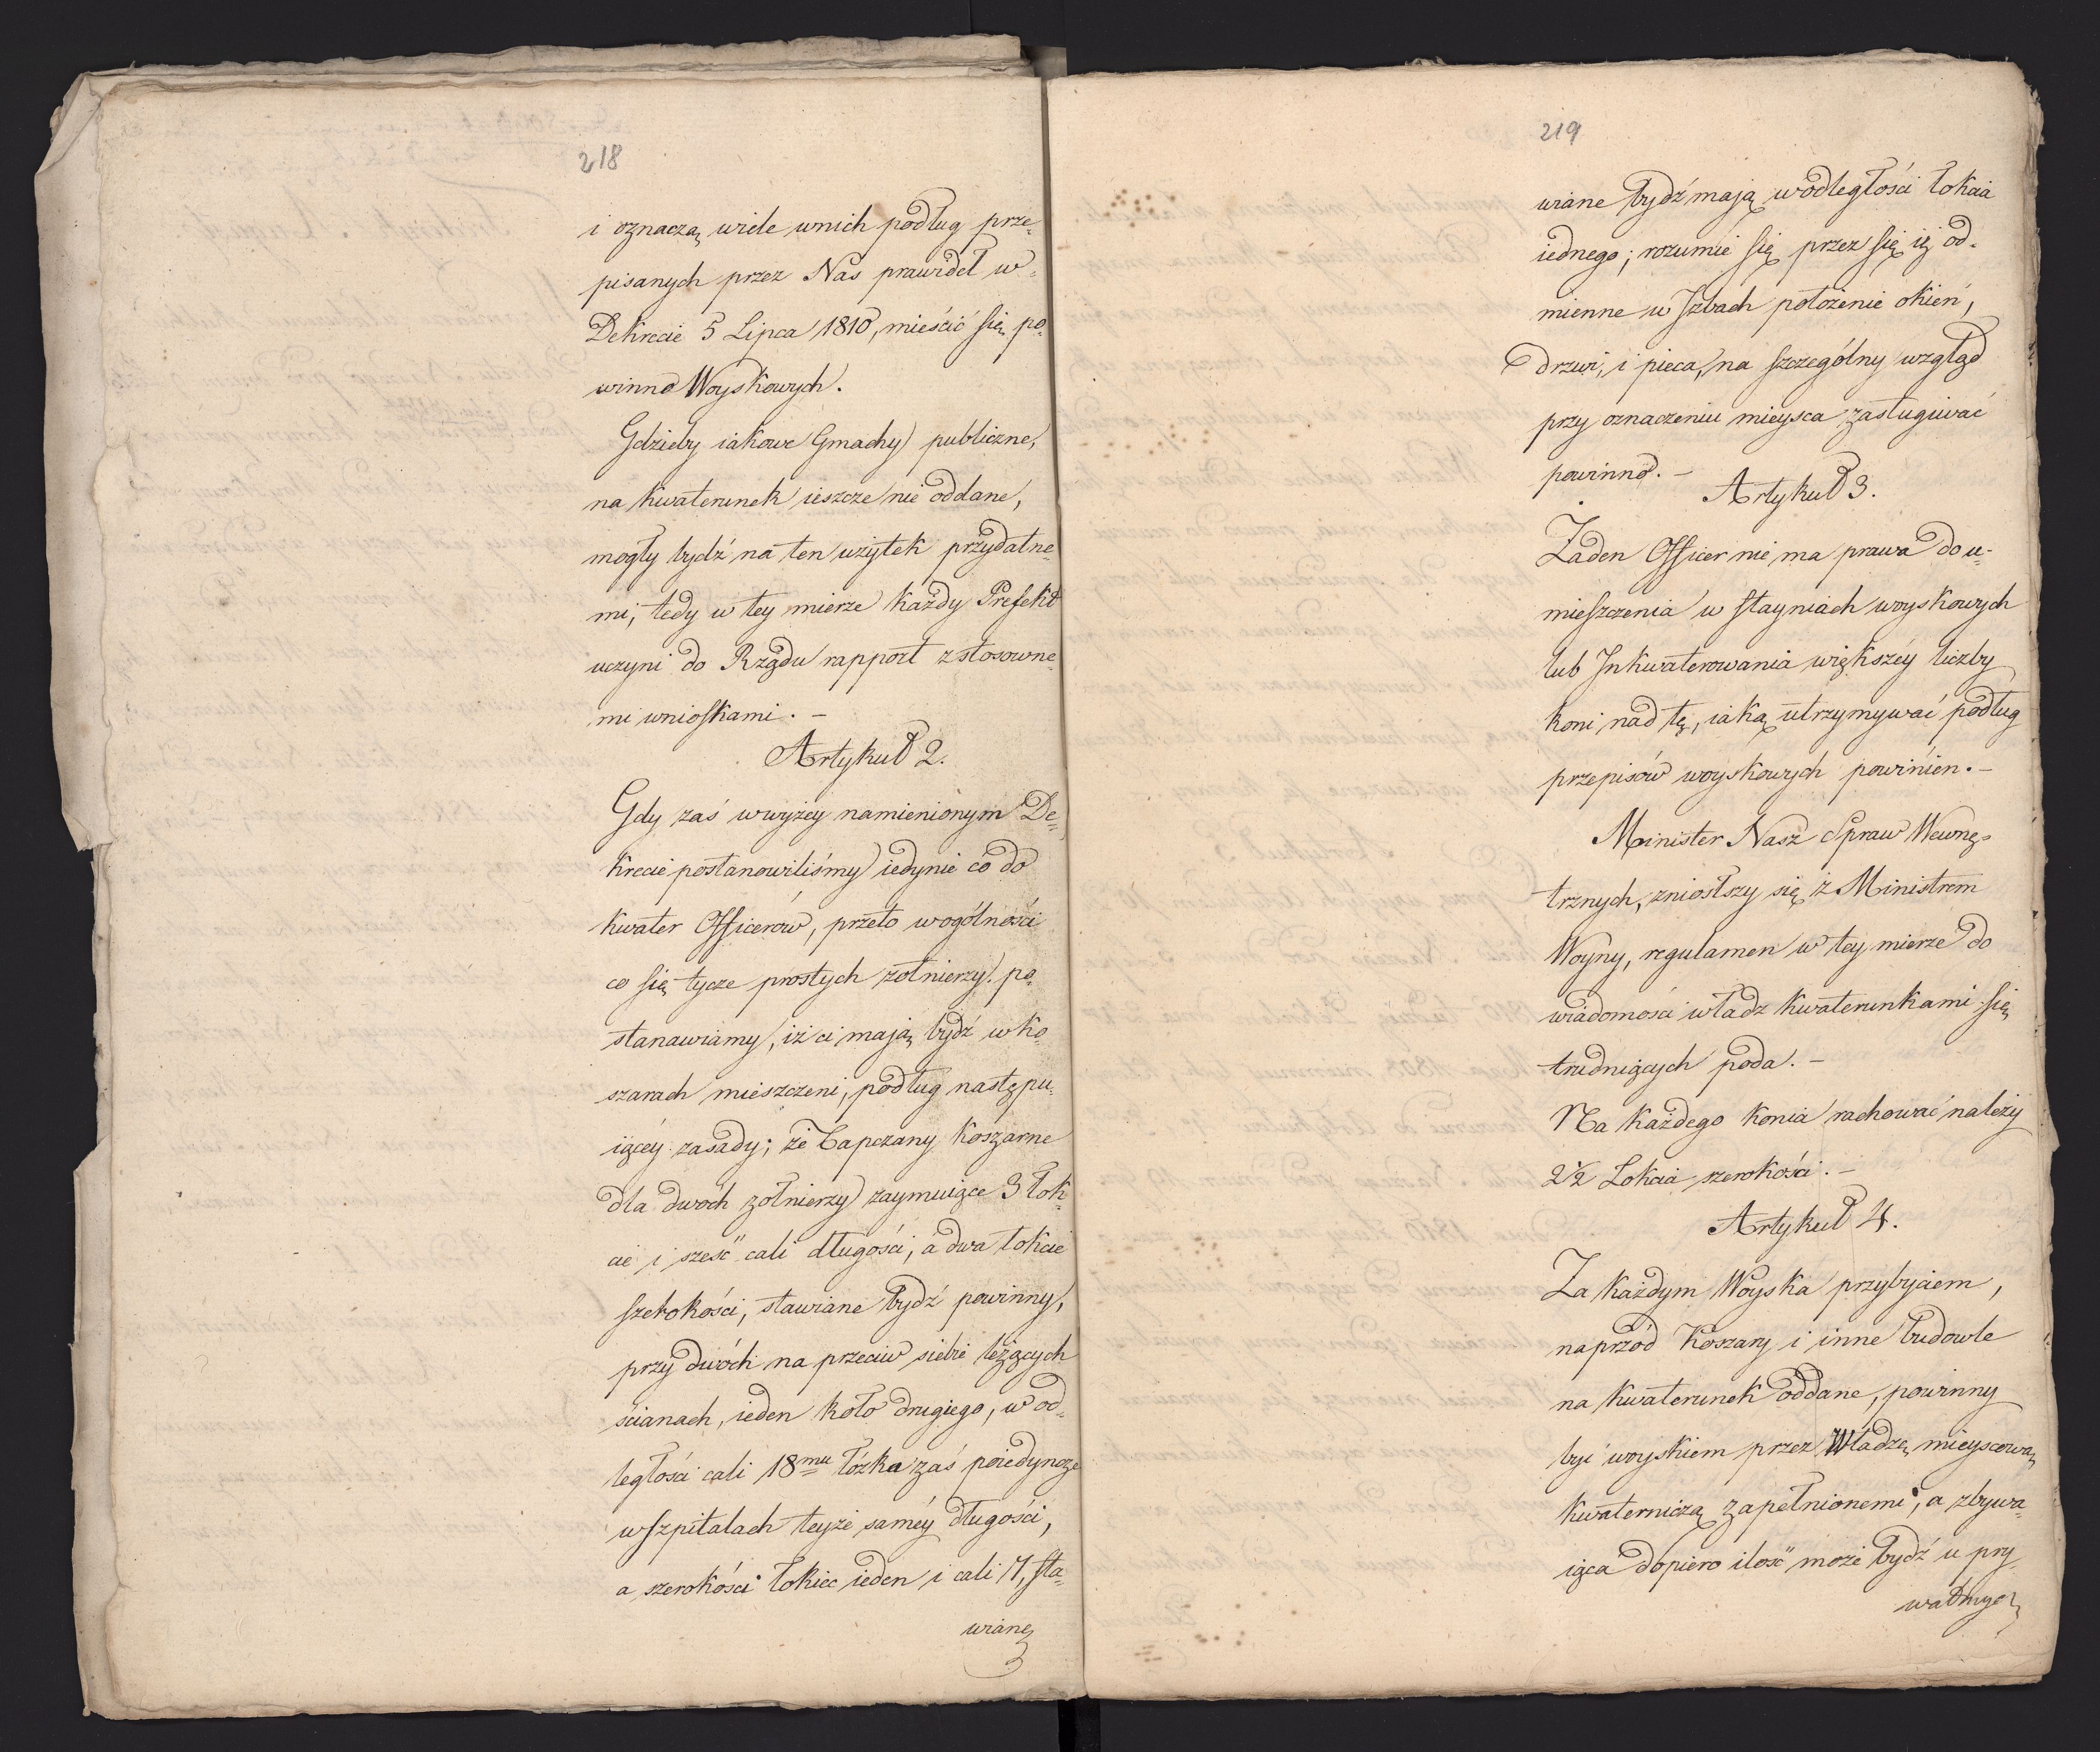 218
i oznaczą wiele wnich podług prze-
pisanych przez Nas prawideł w-
Dekrecie 5 Lipca 1810, mieścić się po-
winno Woyskowych.
Gdzieby iakowe Gmachy publiczne,
na kwaterunek ieszcze nie oddane,
mogły bydź na ten użytek przydatne-
mi, tedy w tey mierze każdy Prefekt
uczyni do Rządu rapport z stosowne-
mi wnioskami. -
Artykuł 2.
Gdy zaś wwyżey namienionym De-
krecie postanowiliśmy iedynie co do
kwater Officerów, przeto wogólności
co się tycze prostych żołnierzy po-
stanawiamy, iż ci maią bydź w ko-
szarach mieszczeni, podług następu-
iącéy zasady; że Tapczany koszarne
dla dwóch żołnierzy zaymuiące 3 łok-
cie i sześć cali długości, a dwa łokcie
szerokości, stawiane bydź powinny,
przy dwóch na przeciw siebie leżących
ścianach, ieden koło drugiego, w od-
ległości cali 18mu łóżka zaś poiedyncze
w szpitalach teyże saméy długości,
a szerokości łokiec ieden i cali 7, sta-
wiane
219
wiane bydź mają wodległości łokcia
iednego; rozumie się przez się iż od-
mienne w Izbach położenie okien,
drzwi, i pieca, na szczególny wzgląd
przy oznaczeniu mieysca zasługiwać
powinno. -
Artykuł 3.
Żaden Officer nie ma prawa do u-
mieszczenia w stayniach woyskowych
lub Inkwaterowania większéy liczby
koni nad tę, iaką utrzymywać podług
przepisów woyskowych powinien. -
Minister Nasz Spraw Wewnę-
trznych, zniosłszy się z Ministrem
Woyny, regulamen w tey mierze do
wiadomości władz kwaterunkami się
trudniących poda. -
Na każdego konia rachować należy
2 1/2 Łokcia szerokości. -
Artykuł 4.
Za każdym Woyska przybyciem,
naprzód Koszary i inne budowle
na kwaterunek oddane, powinny
być woyskiem przez Władzę mieyscową
kwaterniczą zapełnionemi, a zbywa-
iąca dopiero ilość może bydź u pry-
watnych